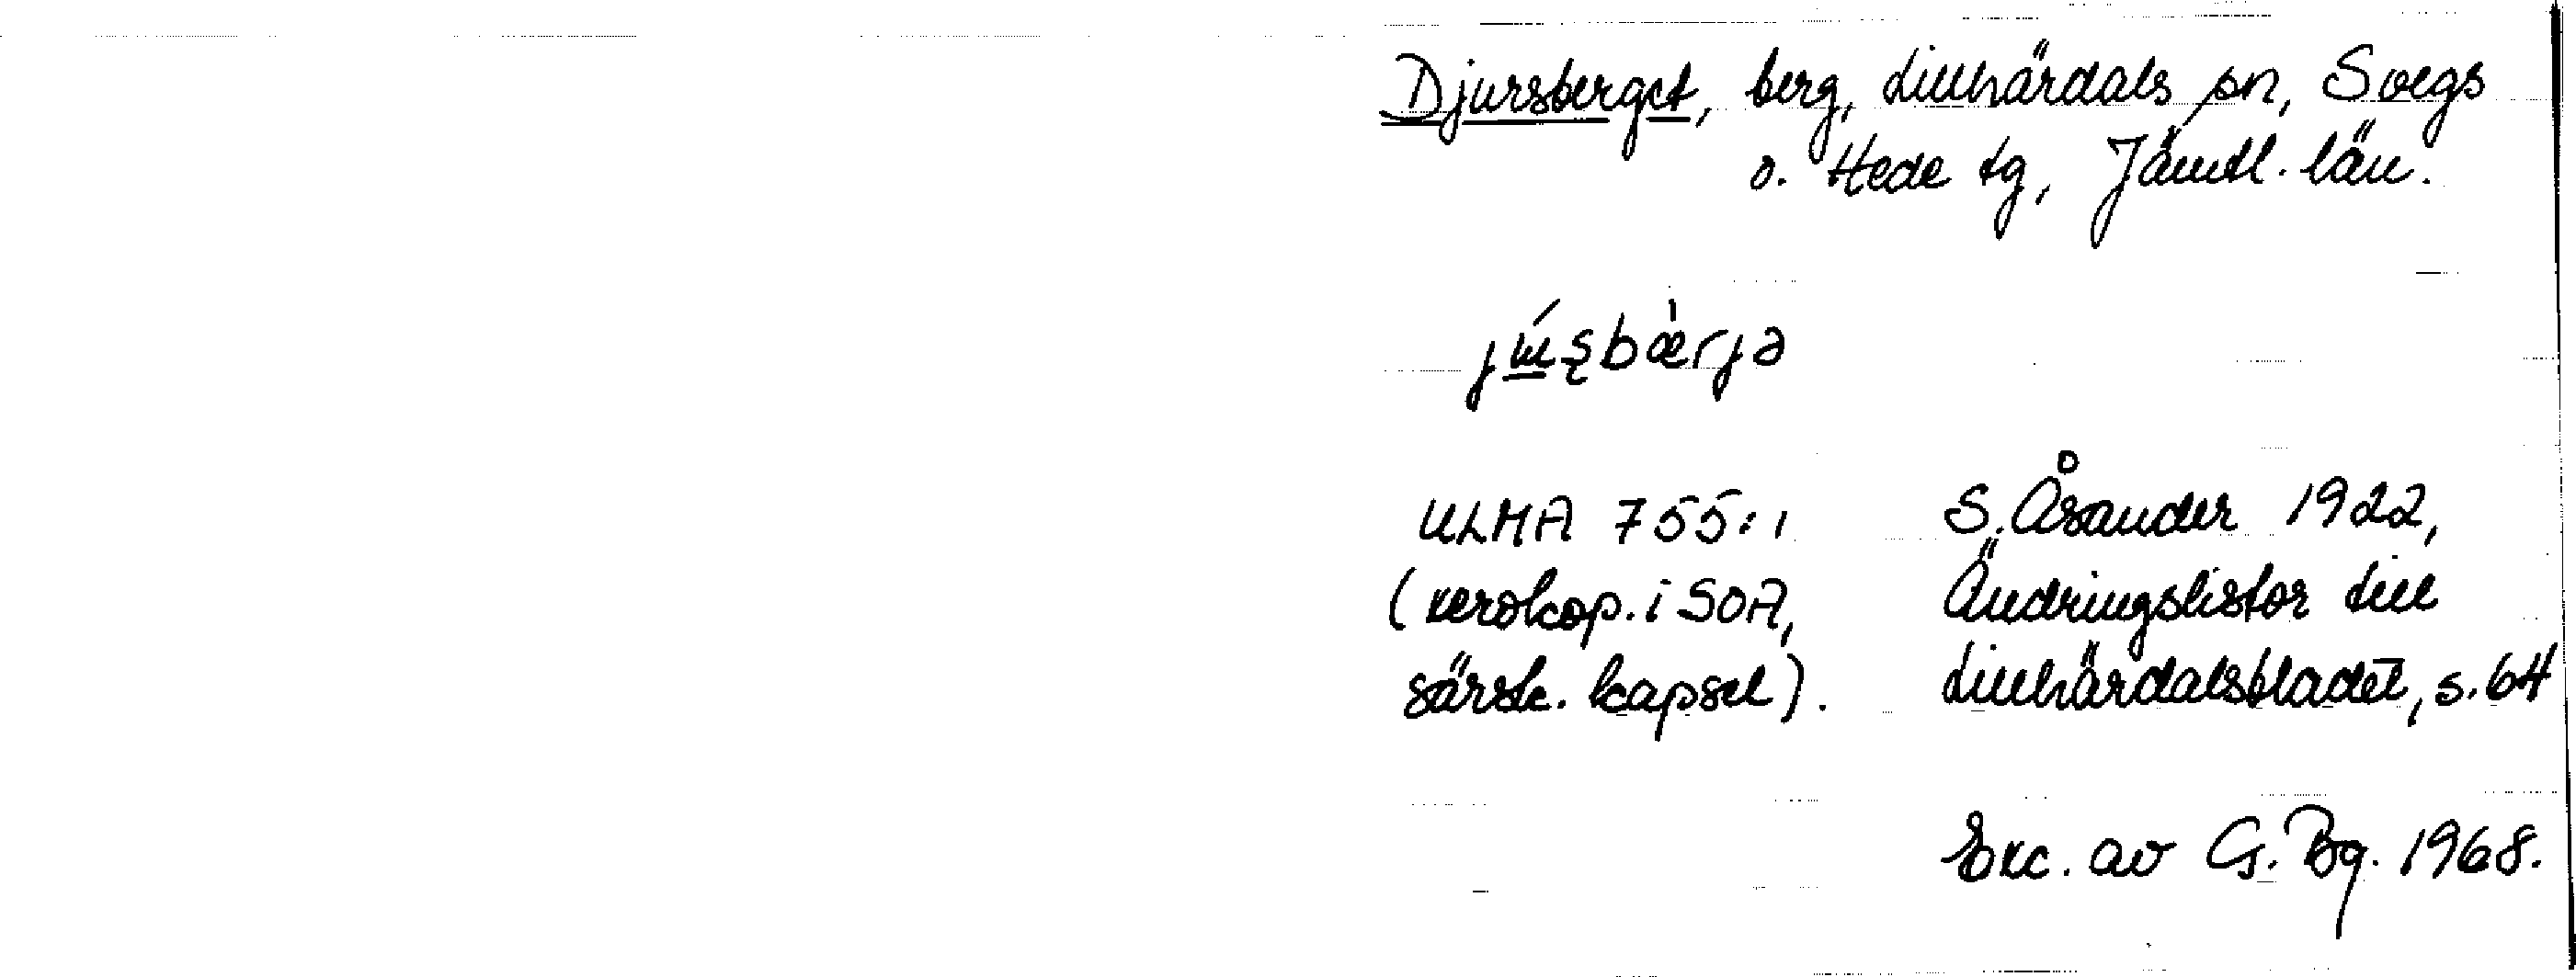 Djursberget, berg, Lillhärdals sn, Svegs
o. Hede tg, Jämtl. län.
ULMA 755:1
(xerokop. i SOA,
särsk. kapsel).
S. Åsander 1922,
Ändringslistor till
Lillhärdalsbladet, s. 64
Exc. av G. Bg. 1968.